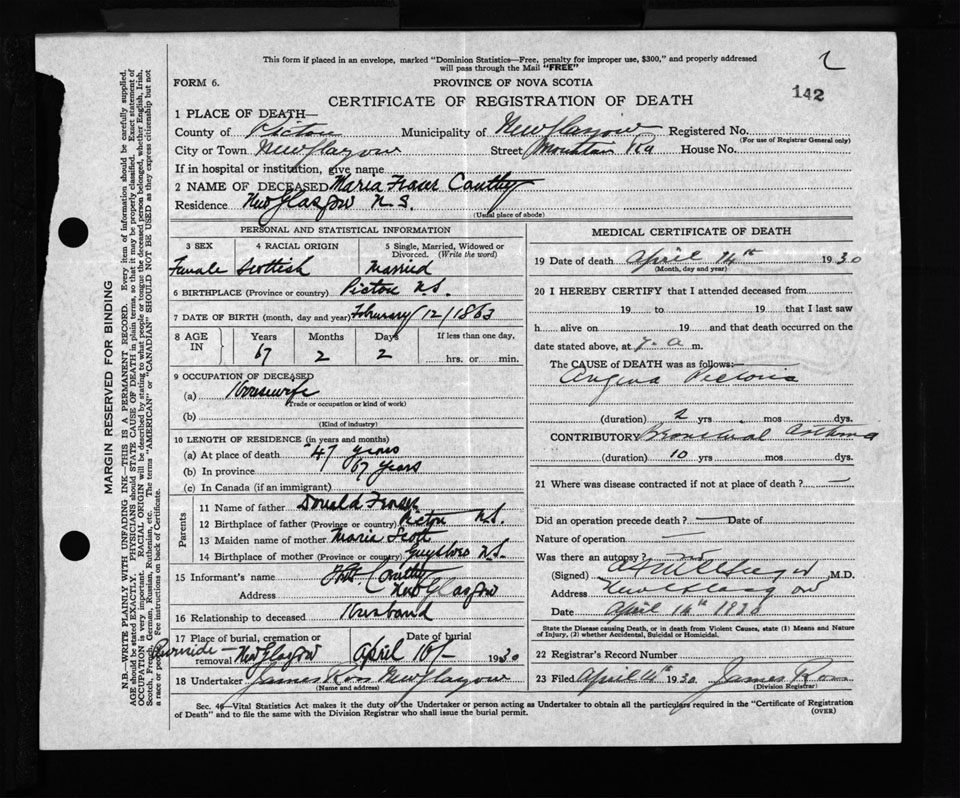 This form if placed in an envelope, marked "Dominion Statistics—Free, penalty for improper use, $300," and properly addressed
will pass through the Mail "FREE"
2
FORM 6.
PROVINCE OF NOVA SCOTIA
142
CERTIFICATE OF REGISTRATION OF DEATH
1 PLACE OF DEATH—
County of Pictou Municipality of New Glasgow Registered No.
(For use of Registrar General only)
City or Town New Glasgow Street Mountain Rd House No.
If in hospital or institution, give name
2 NAME OF DECEASED Maria Fraser
Residence New Glasgow N.S.
(Usual place of abode)
PERSONAL AND STATISTICAL INFORMATION
3 SEX 4 RACIAL ORIGIN 5 Single, Married, Widowed or Divorced. (Write the word)
Female Scottish Married
6 BIRTHPLACE (Province or country) Pictou N.S.
7 DATE OF BIRTH (month, day and year) February/12/1863
8 AGE IN Years Months Days If less than one day,
67 2 2 hrs. or min.
9 OCCUPATION OF DECEASED
(a) Housewife
(Trade or occupation or kind of work)
(b)
(Kind of industry)
10 LENGTH OF RESIDENCE (in years and months)
(a) At place of death 47 years
(b) In province 67 years
(c) In Canada (if an immigrant)
Parents
11 Name of father Donald Fraser
12 Birthplace of father (Province or country) Pictou N.S.
13 Maiden name of mother Maria Scott
14 Birthplace of mother (Province or country) Guysboro N.S.
15 Informant's name
Address New Glasgow
16 Relationship to deceased Husband
17 Place of burial, cremation or removal Date of burial
Riverside - New Glasgow April 16/- 1930
18 Undertaker James Ross New Glasgow
(Name and address)
MEDICAL CERTIFICATE OF DEATH
19 Date of death April 14th 1930
(Month, day and year)
20 I HEREBY CERTIFY that I attended deceased from
19 to 19 that I last saw
h alive on 19 and that death occurred on
date stated above, at 7. a m.
The CAUSE OF DEATH was as follows:—
Angina Pectoris
(duration) 2 yrs. mos dys.
CONTRIBUTORY Bronchial Asthma
(duration) 10 yrs. mos. dys.
21 Where was disease contracted if not at place of death? —
Did an operation precede death? — Date of
Nature of operation —
Was there an autopsy? no
(Signed) M.D.
Address New Glasgow
Date April 14th 1930
State the Disease causing Death, or in death from Violent Causes, state (1) Means and Nature
of Injury, (2) whether Accidental, Suicidal or Homicidal.
22 Registrar's Record Number
23 Filed April 1930 James Ross
(Division Registrar)
Sec. 49—Vital Statistics Act makes it the duty of the Undertaker or person acting as Undertaker to obtain all the particulars required in the "Certificate of Registration
of Death" and to file the same with the Division Registrar who shall issue the burial permit. (OVER)
MARGIN RESERVED FOR BINDING
N.B.—WRITE PLAINLY WITH UNFADING INK—THIS IS A PERMANENT RECORD. Every item of information should be carefully supplied.
AGE should be stated EXACTLY. PHYSICIANS should STATE CAUSE OF DEATH in plain terms, so that it may be properly classified. Exact statement of
OCCUPATION is very important. RACIAL ORIGIN will be described by stating to what people or tongue the deceased person belonged, whether English, Irish,
Scotch, French, German, Russian, Ruthenian, etc. The terms "AMERICAN" or "CANADIAN" SHOULD NOT BE USED as they express citizenship but not
a race or people. See instructions on back of Certificate.